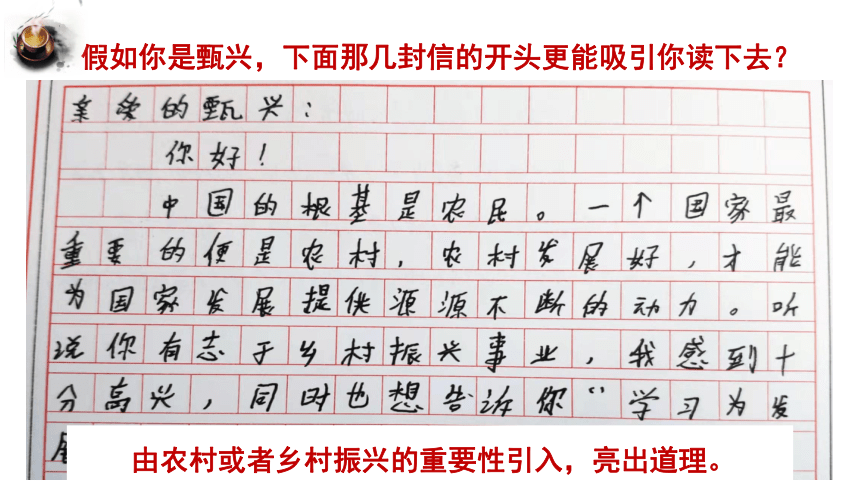 假如你是甄兴，下面那几封信的开头更能吸引你读下去？
亲爱的甄兴：
你好！
中国的根基是农民。一个国家最
重要的便是农村，农村发展好，才能
为国家发展提供源源不断的动力。听
说你有志于乡村振兴事业，我感到十
分高兴，同时也想告诉你“学习为发
由农村或者乡村振兴的重要性引入，亮出道理。